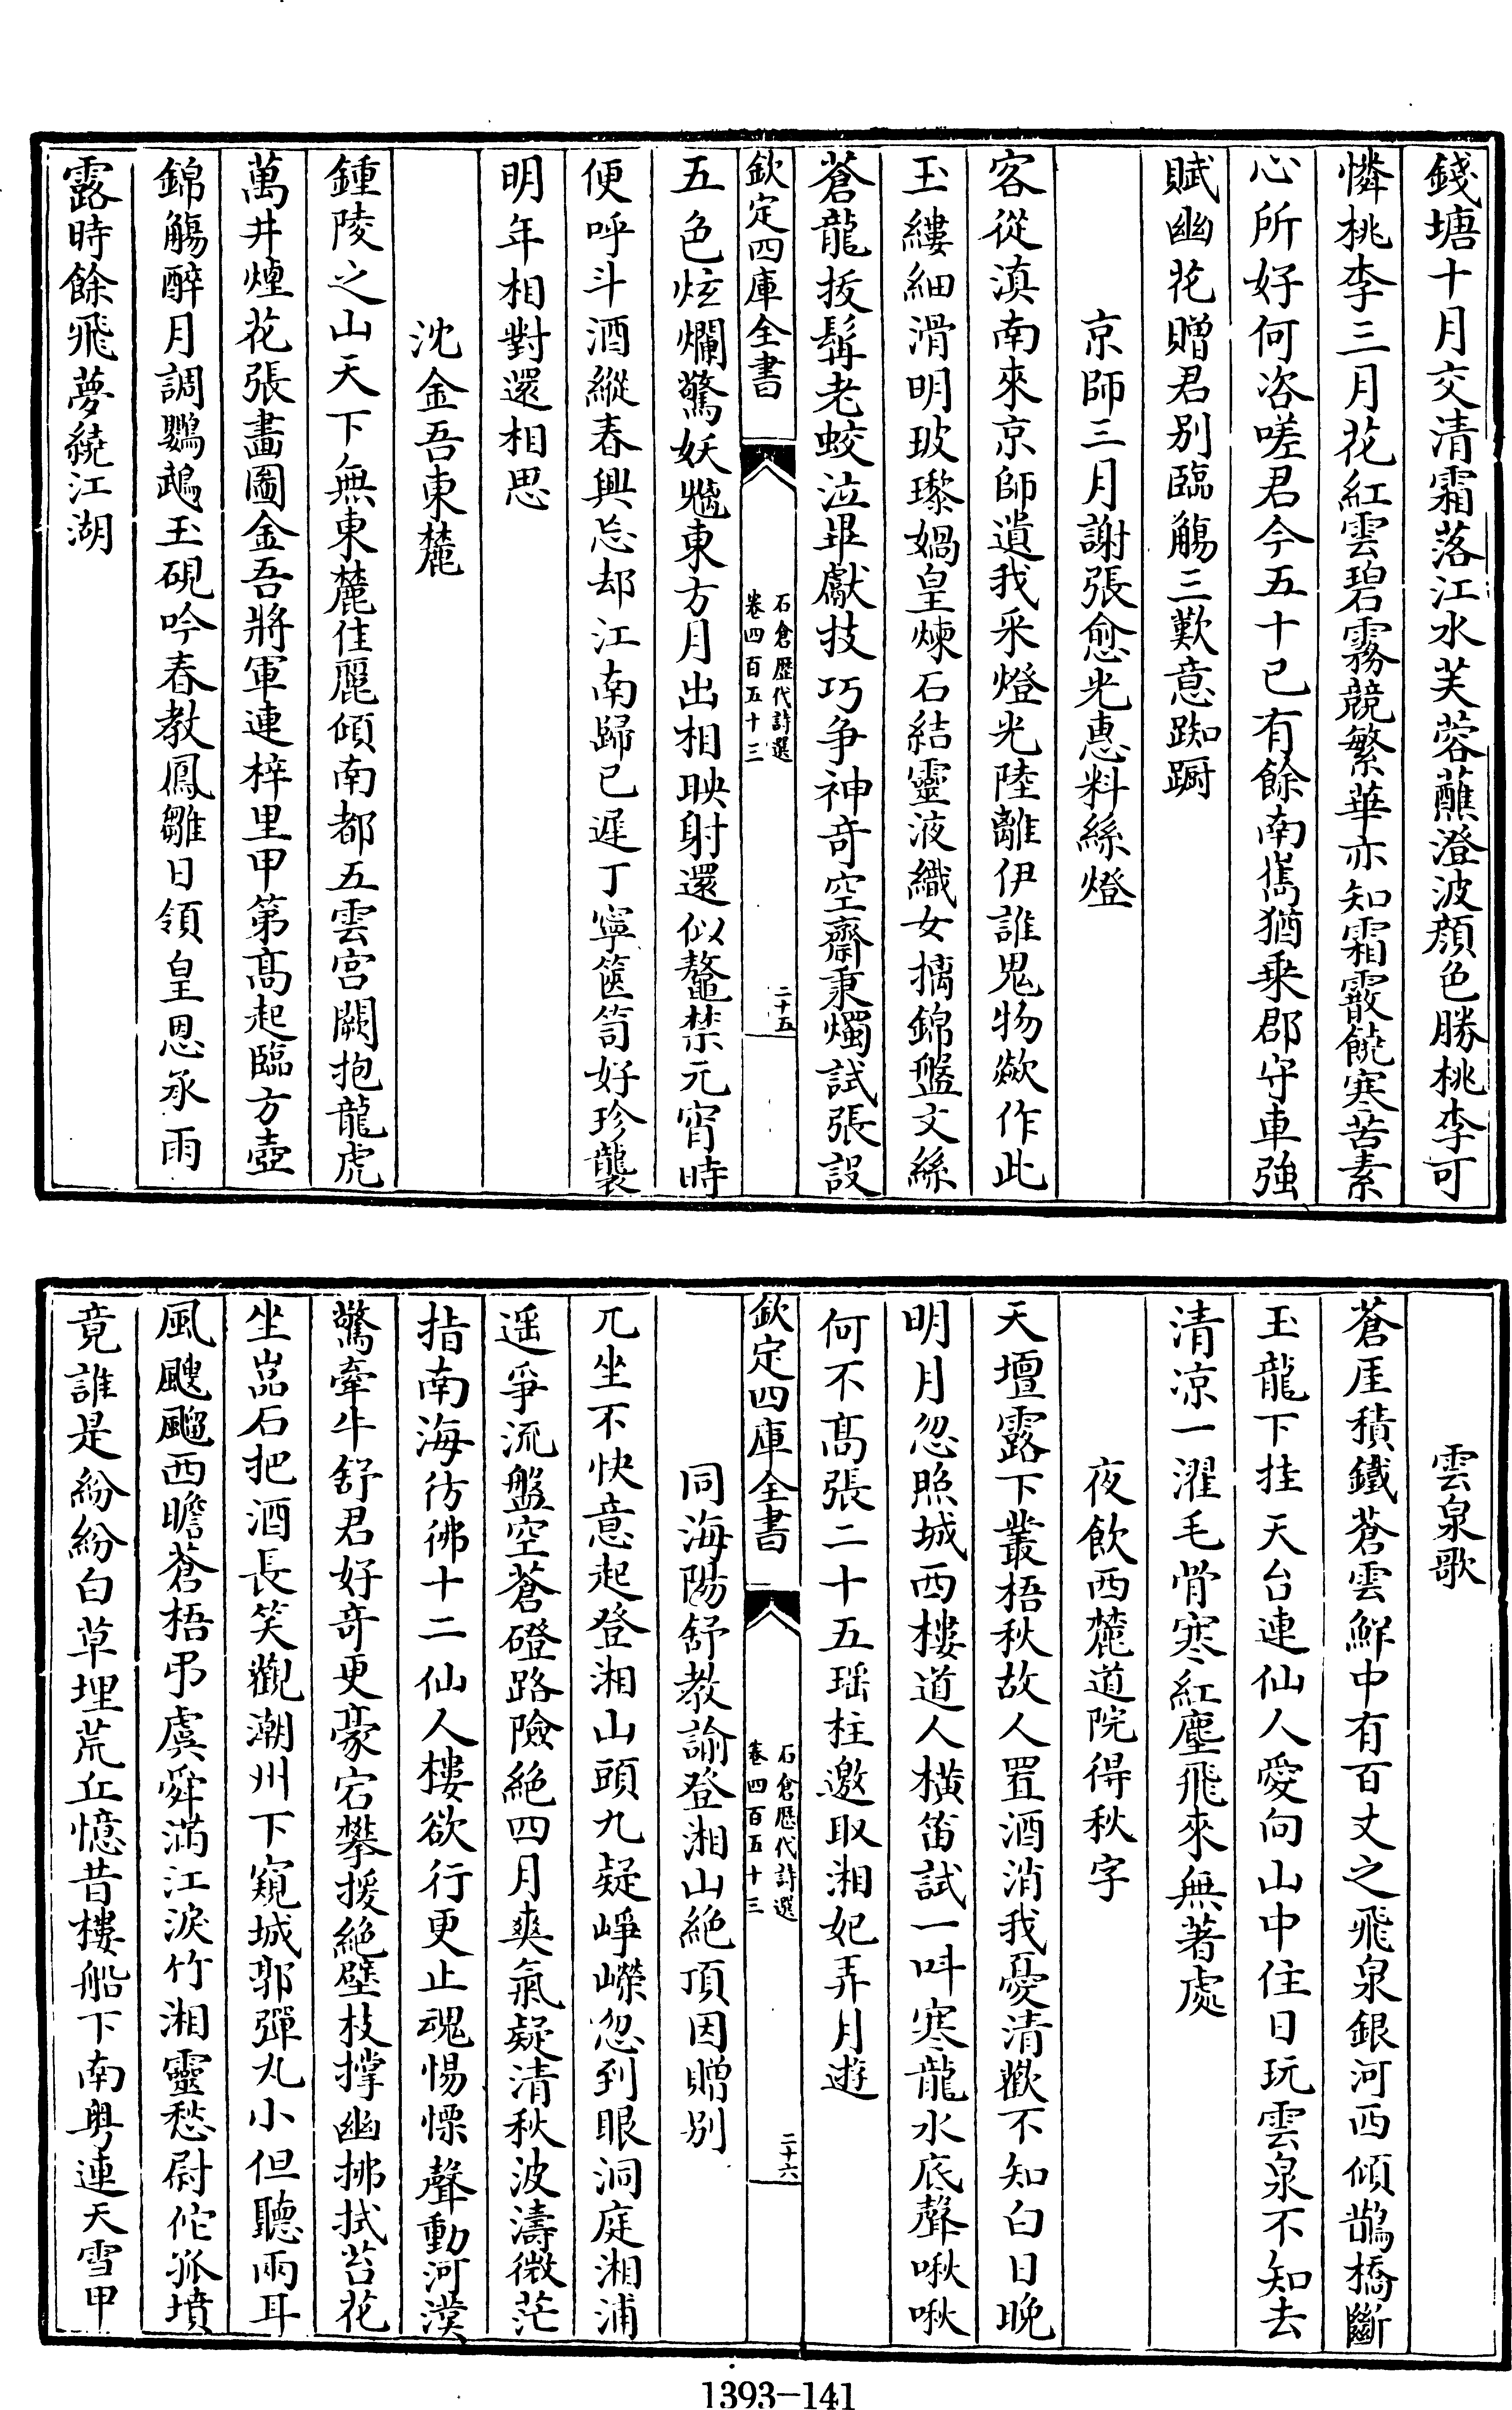 錢塘十月交清霜落江水芙蓉蘸澄波顔色勝桃李可
憐桃李三月花紅雲碧霧競繁華亦知霜霰饒寒苦素
心所好何咨嗟君今五十已有餘南雋猶乗郡守車強
賦幽花贈君别臨觴三歎意踟蹰
京師三月謝張愈光惠料絲燈
客從滇南來京師遺我釆燈光陸離伊誰鬼物歘作此
玉縷細滑明玻瓈媧皇煉石結靈液織女摛錦盤文絲
蒼龍拔髯老蛟泣畢獻技巧爭神奇空齋秉燭試張設
欽定四庫全書
石倉歴代詩選
卷四百五十三
二十五
五色炫爛驚妖魑東方月出相映射還似鼇禁元宵時
便呼斗酒縱春興忘却江南歸已遲丁寧篋笥好珍襲
明年相對還相思
沈金吾東麓
鍾陵之山天下無東麓佳麗傾南都五雲宫闕抱龍虎
萬井煙花張畫圖金吾將軍連梓里甲第髙起臨方壺
錦觴醉月調鸚鵡玉硯吟春教鳳雛日領皇恩承雨
露時餘飛夢繞江湖
雲泉歌
蒼厓積鐵蒼雲鮮中有百丈之飛泉銀河西傾鵲橋斷
玉龍下挂天台連仙人愛向山中住日玩雲泉不知去
清凉一濯毛骨寒紅塵飛來無著處
夜飲西麓道院得秋字
天壇露下叢梧秋故人置酒消我憂清歡不知白日晚
明月忽照城西樓道人横笛試一呌寒龍水底聲啾啾
何不髙張二十五瑶柱邀取湘妃弄月遊
欽定四庫全書
石倉歴代詩選
卷四百五十三
二十六
同海陽舒教諭登湘山絶頂因贈别
兀坐不快意起登湘山頭九疑崢嶸忽到眼洞庭湘浦
遥爭流盤空蒼磴路險絶四月爽氣疑清秋波濤微茫
指南海彷彿十二仙人樓欲行更止魂惕慄聲動河漢
驚牽牛舒君好奇更豪宕攀援絶壁枝撑幽拂拭苔花
坐嵓石把酒長笑觀潮州下窺城郭彈丸小但聽兩耳
風颼飀西瞻蒼梧弔虞舜滿江淚竹湘靈愁尉佗孤墳
竟誰是紛紛白草埋荒丘憶昔樓船下南粤連天雪甲
1393-141